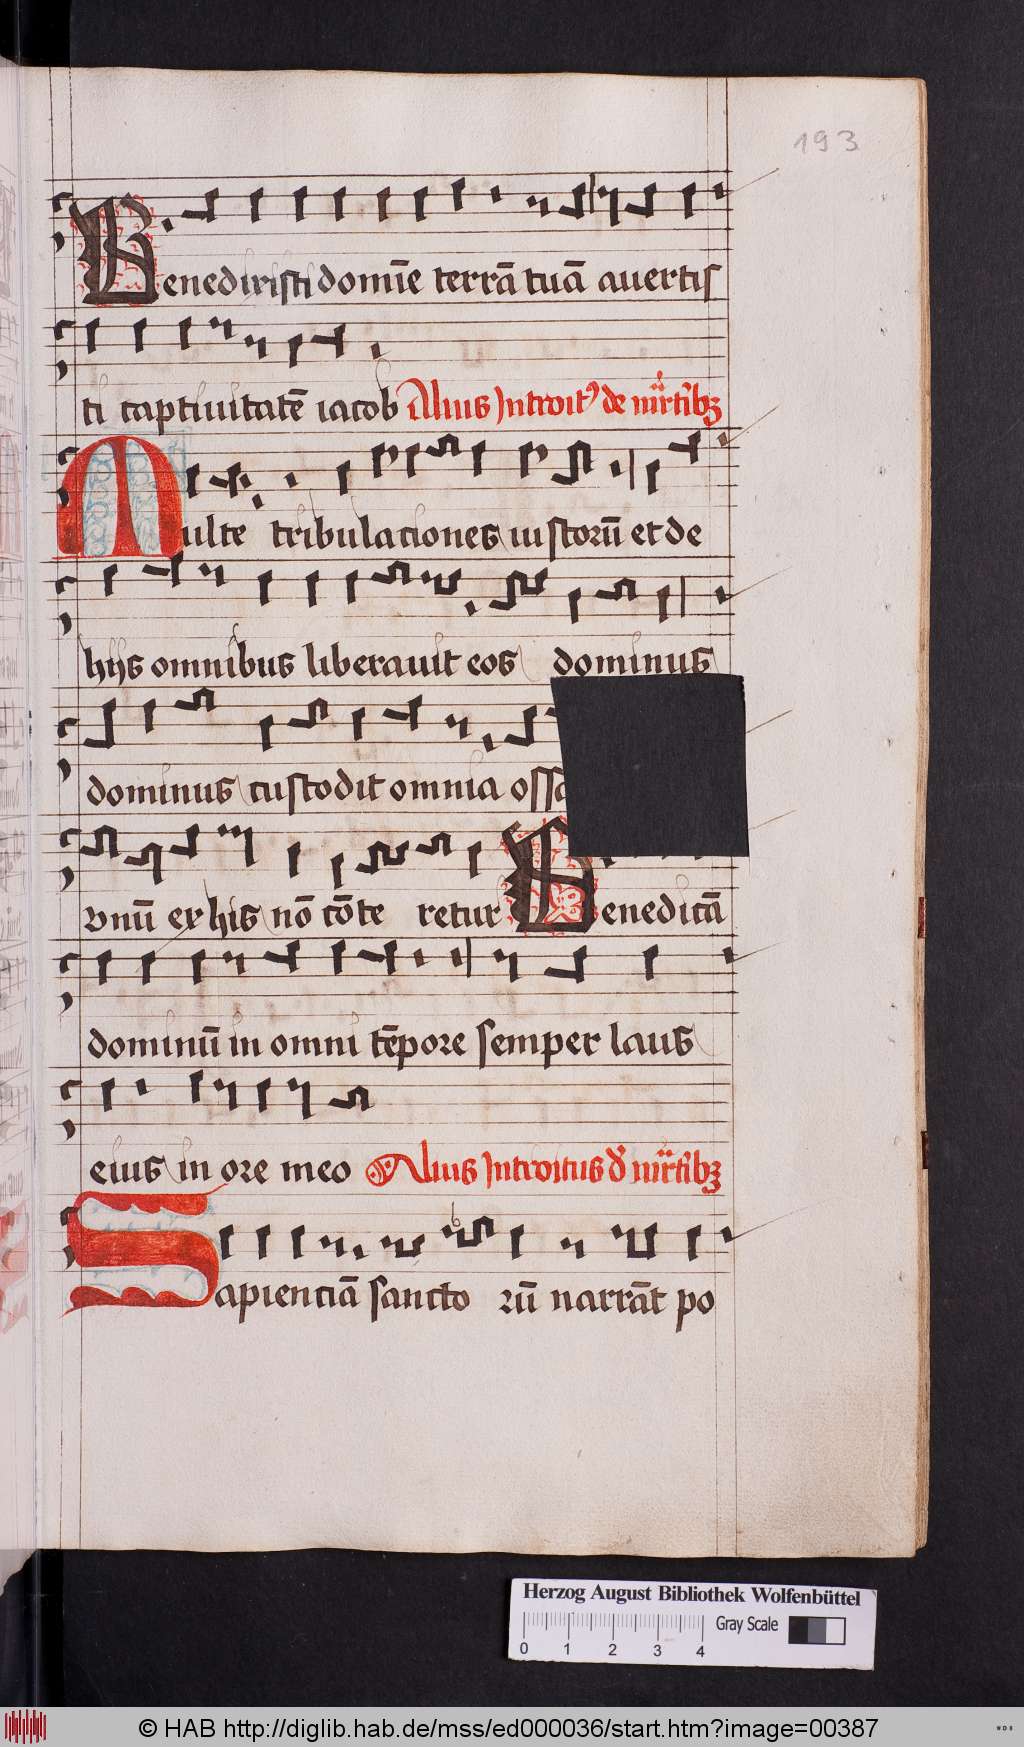 193
Benedixisti domīe terrā tuā auertis
ti captiuitatē iacob Alius Introitꝰ de mr̄tībꝫ
Multe tribulaciones iustorū et de
hijs omnibus liberauit eos dominus
dominus custodit omnia ossa
vnū ex his nō cōte retur Benedicā
dominū in omni tēpore semper laus
eius in ore meo Alius Introitus d' mr̄tībꝫ
Sapienciā sancto rū narrāt po
Herzog August Bibliothek Wolfenbüttel
Gray Scale
0 1 2 3 4
© HAB http://diglib.hab.de/mss/ed000036/start.htm?image=00387